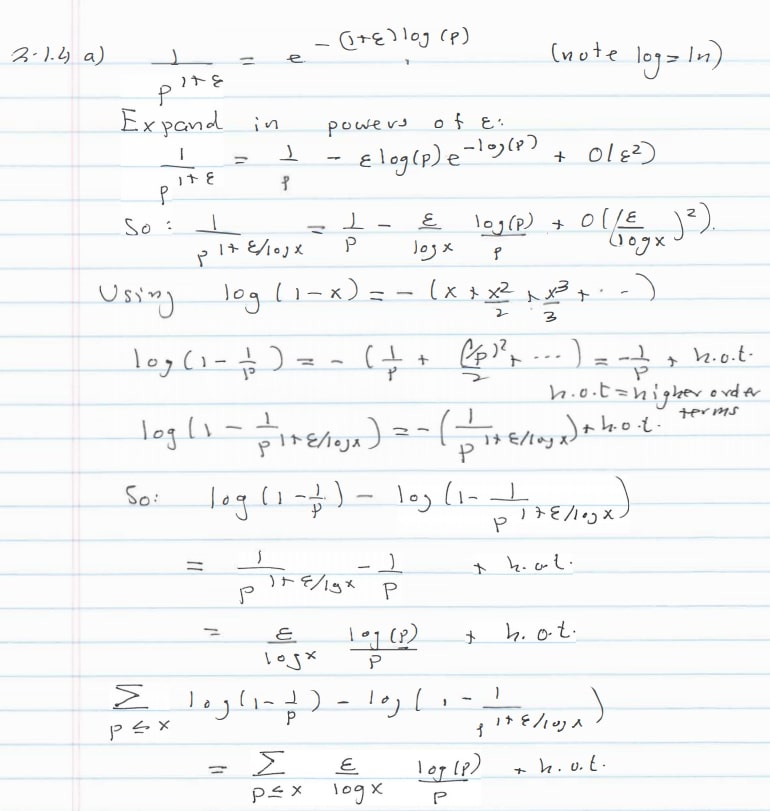 2.1.4 a) 1/p^(1+ε) = e^(-(1+ε)log(p)) (note log=ln)
Expand in powers of ε:
1/p^(1+ε) = 1/p - ε log(p) e^(-log(p)) + O(ε²)
So : 1/p^(1+ε/log x) = 1/p - ε/log x log(p)/p + O((ε/log x)²).
Using log(1-x) = -(x + x²/2 + x³/3 + ...)
log(1-1/p) = -(1/p + (1/p)²/2 + ...) = -1/p + h.o.t.
h.o.t = higher order terms
log(1 - 1/p^(1+ε/log x)) = -(1/p^(1+ε/log x)) + h.o.t.
So: log(1-1/p) - log(1- 1/p^(1+ε/log x))
= 1/p^(1+ε/lg x) - 1/p + h.o.t.
= ε/log x log(p)/p + h.o.t.
∑_(p≤x) log(1-1/p) - log(1 - 1/p^(1+ε/log x))
= ∑_(p≤x) ε/log x log(p)/p + h.o.t.